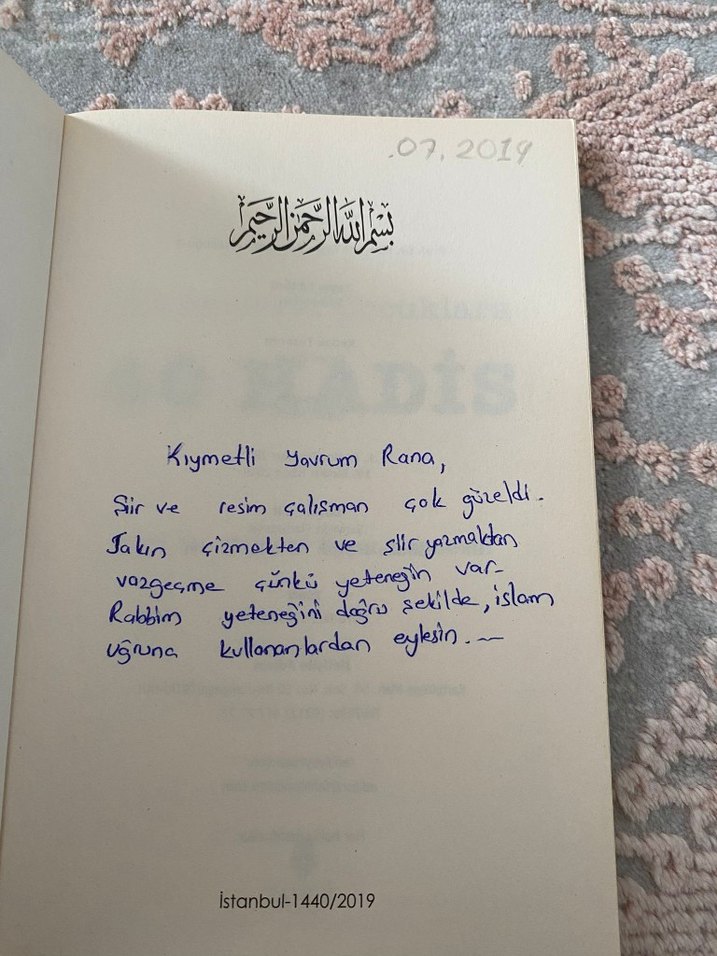 .07.2019
بسم الله الرحمن الرحيم
40 HADİS
Kıymetli Yavrum Rana,
Şiir ve resim çalışman çok güzeldi.
Sakın çizmekten ve şiir yazmaktan
vazgeçme çünkü yeteneğin var-
Rabbim yeteneğini doğru şekilde, islam
uğruna kullananlardan eylesin.
İstanbul-1440/2019